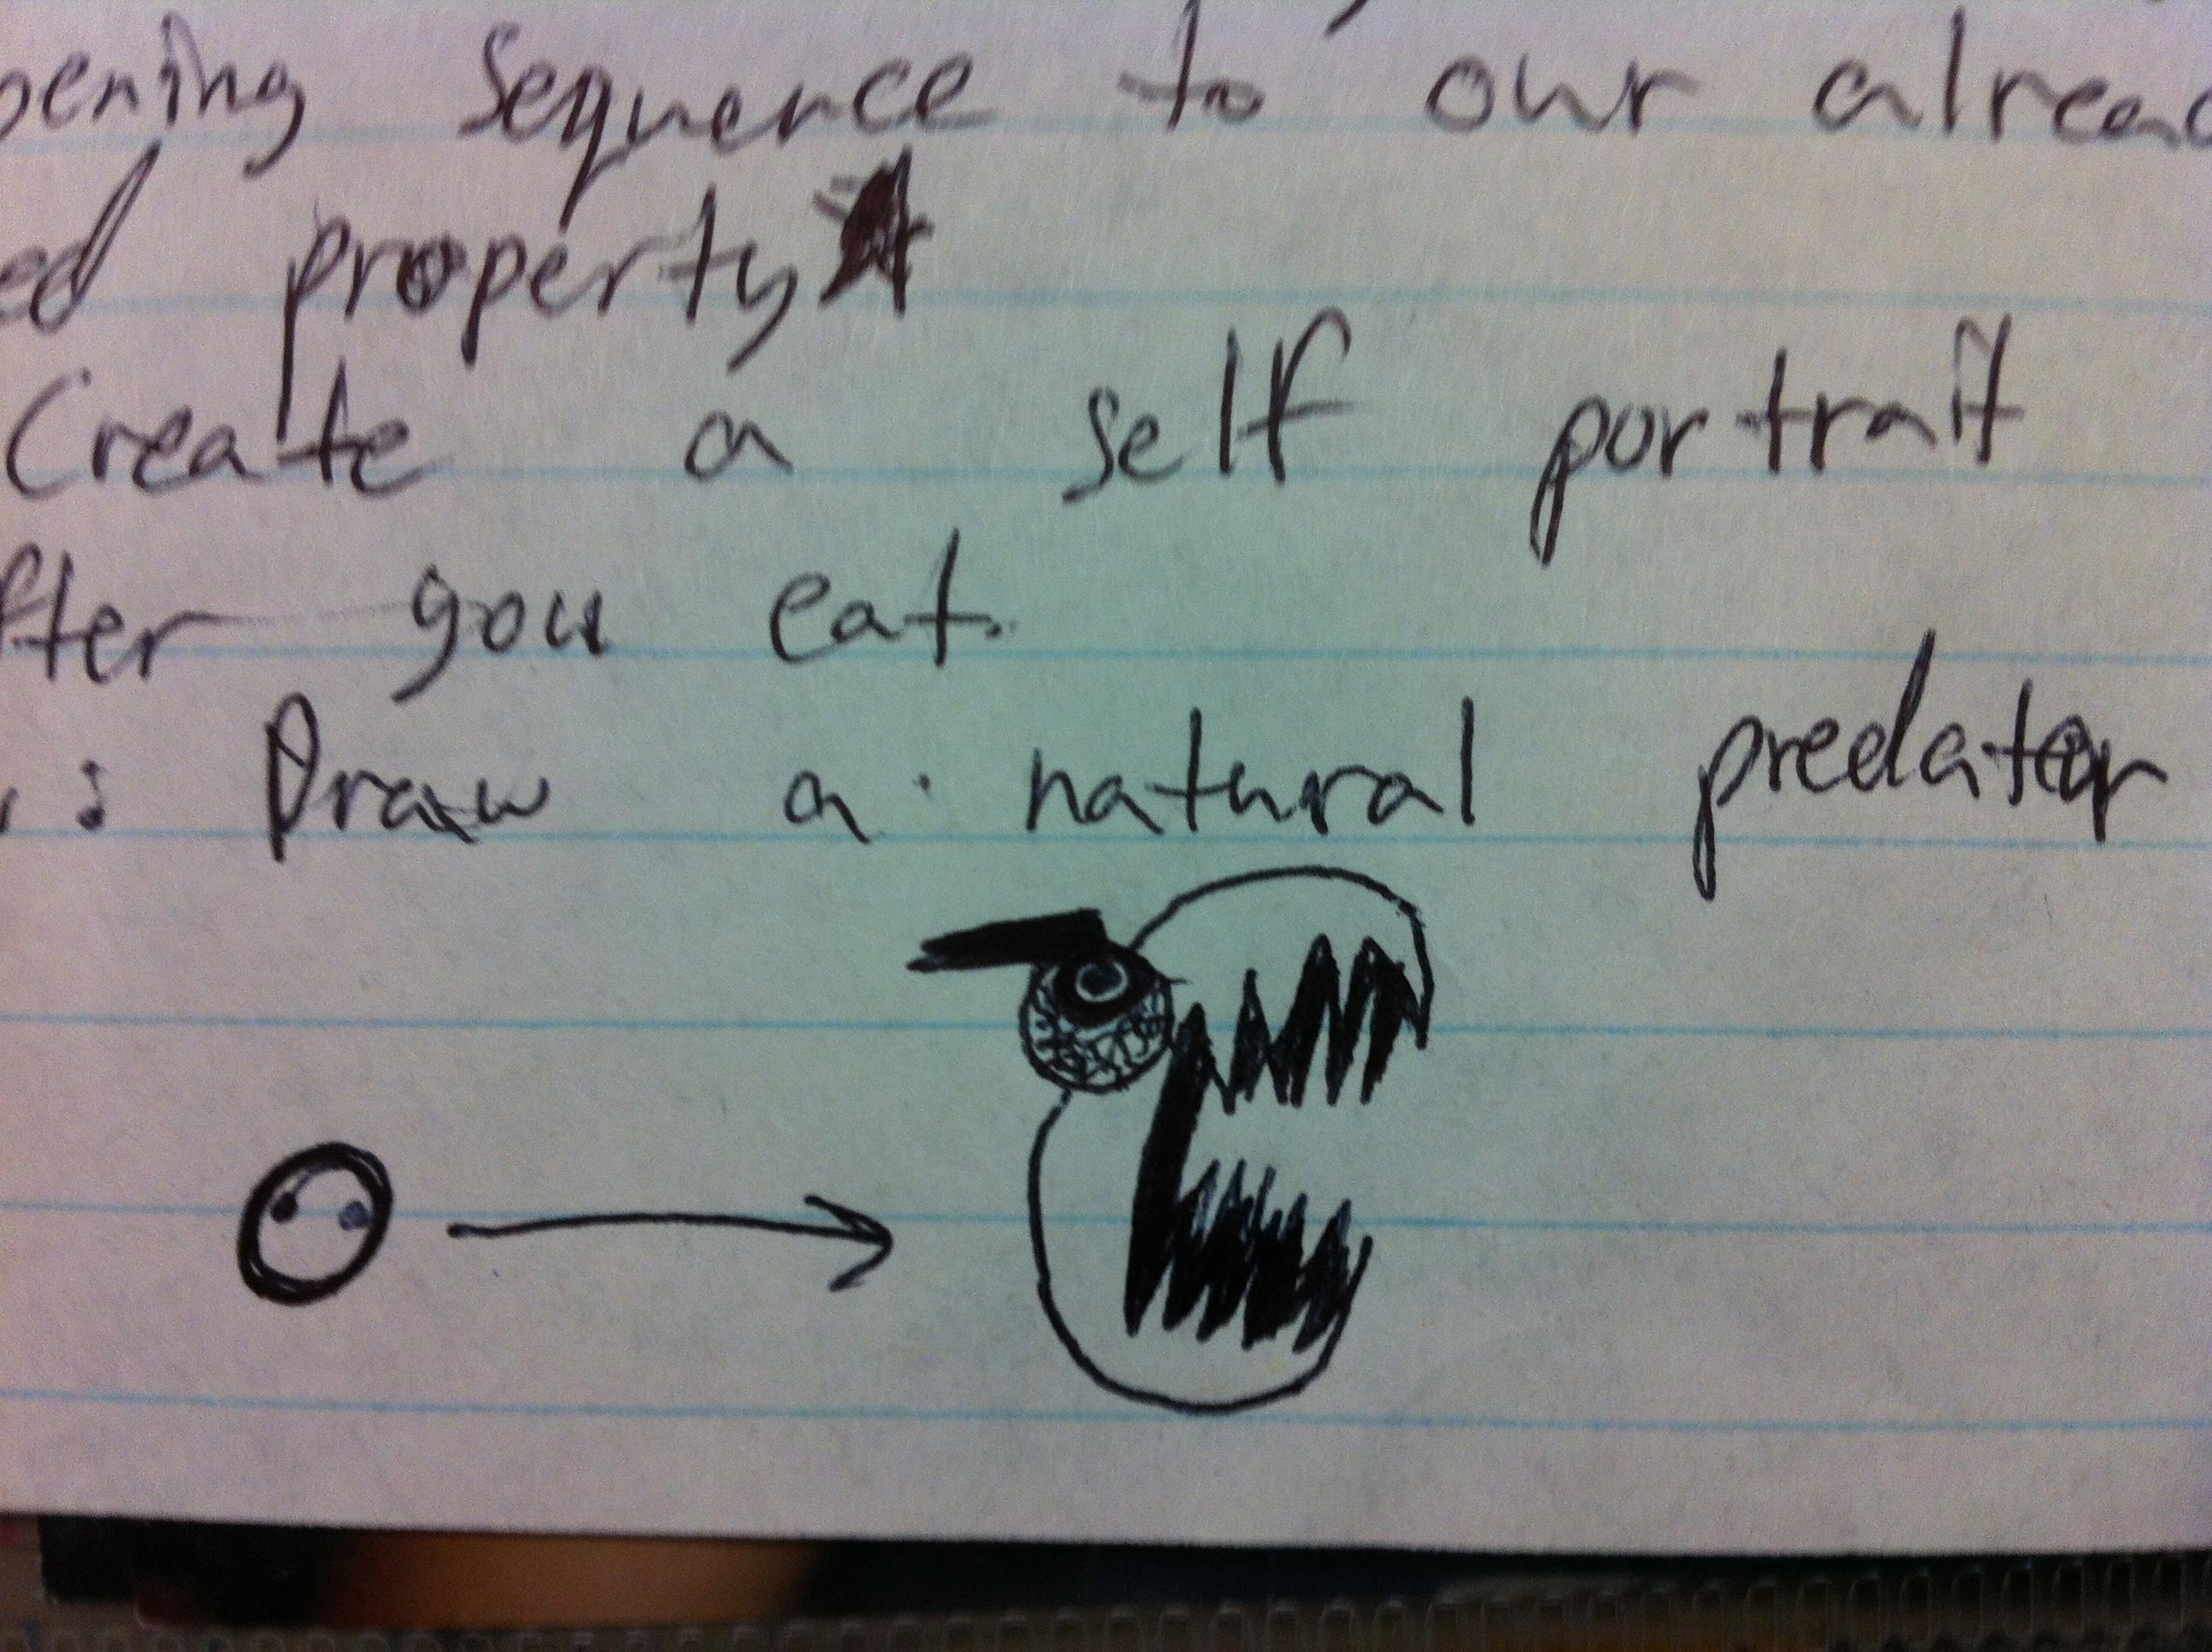 pening sequence to our alread
ed property
Create a self portrait
fter you eat.
: Draw a natural predator